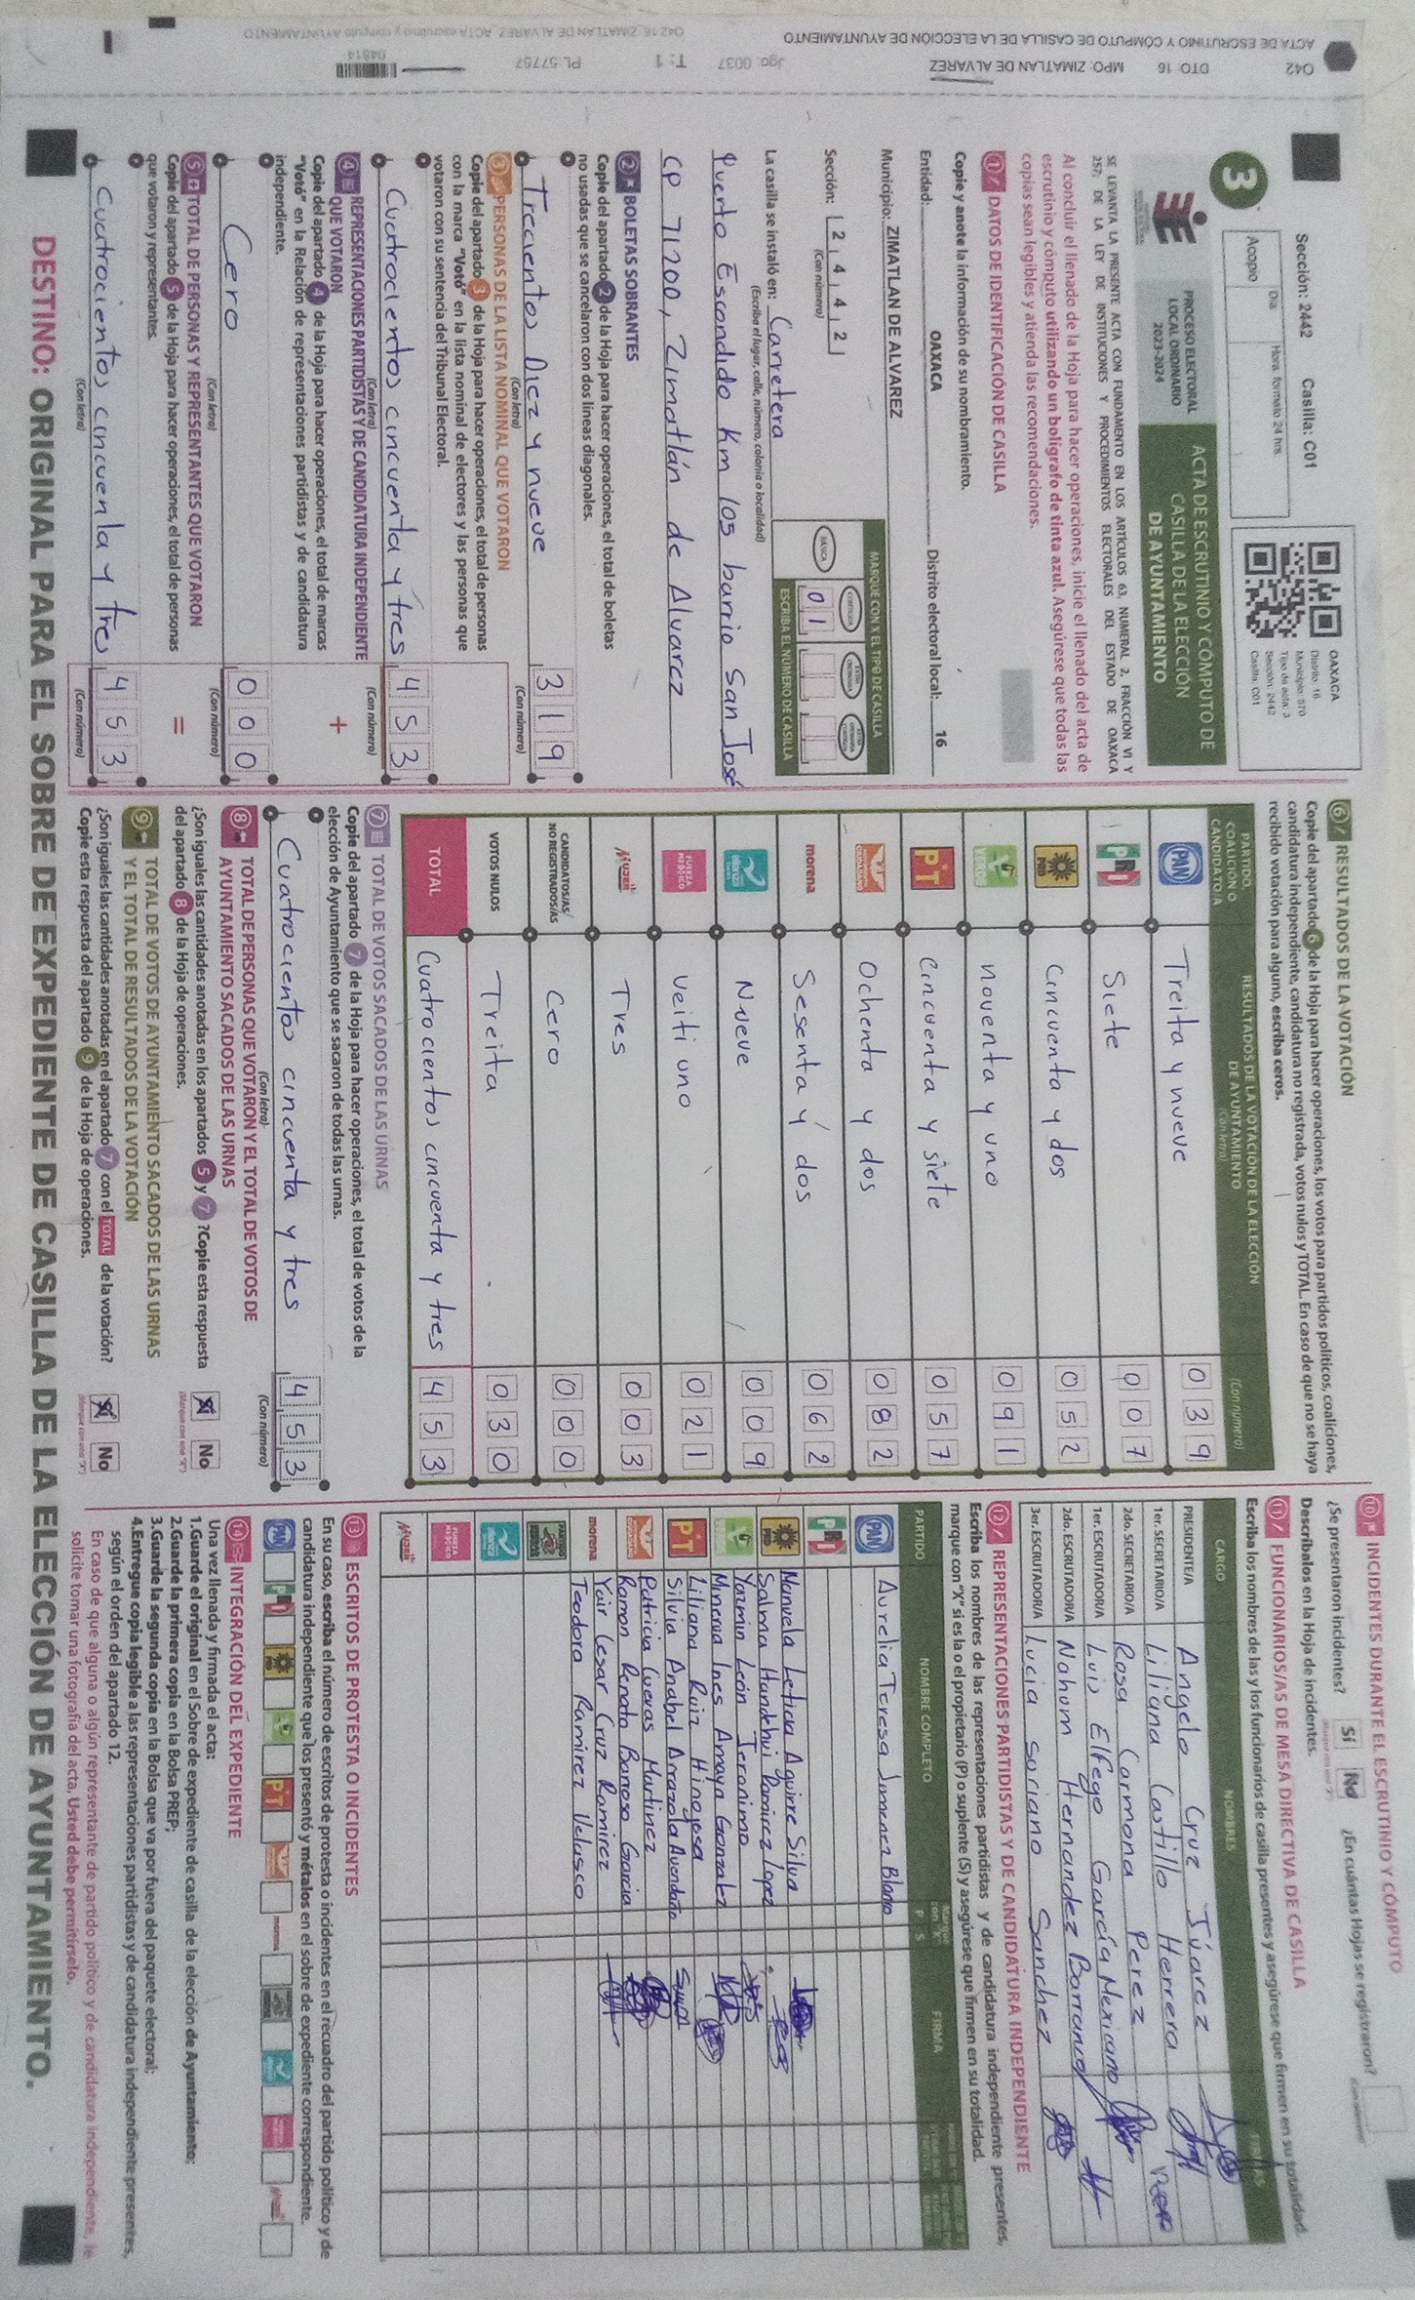 Sección: 2442 Casilla: C01
Día
Hora formato 24 hrs
Acopio
3
OAXACA
Distrito: 16
Municipio: 570
Tipo de acta: 3
Sección: 2442
Casilla: C01
PROCESO ELECTORAL
LOCAL ORDINARIO
2023-2024
ACTA DE ESCRUTINIO Y CÓMPUTO DE
CASILLA DE LA ELECCIÓN
DE AYUNTAMIENTO
SE LEVANTA LA PRESENTE ACTA CON FUNDAMENTO EN LOS ARTÍCULOS 63, NUMERAL 2, FRACCIÓN VI Y
257; DE LA LEY DE INSTITUCIONES Y PROCEDIMIENTOS ELECTORALES DEL ESTADO DE OAXACA
Al concluir el llenado de la Hoja para hacer operaciones, inicie el llenado del acta de
escrutinio y cómputo utilizando un bolígrafo de tinta azul. Asegúrese que todas las
copias sean legibles y atienda las recomendaciones.
1 DATOS DE IDENTIFICACIÓN DE CASILLA
Copie y anote la información de su nombramiento.
Entidad: OAXACA Distrito electoral local: 16
Municipio: ZIMATLAN DE ALVAREZ
Sección: 2 4 4 2
(Con número)
MARQUE CON X EL TIPO DE CASILLA
BÁSICA
0 1
ESCRIBA EL NÚMERO DE CASILLA
La casilla se instaló en: Carretera
(Escriba el lugar, calle, número, colonia o localidad)
Puerto Escondido Km 105 barrio San José
CP 71200, Zimatlán de Alvarez
2 BOLETAS SOBRANTES
Copie del apartado 2 de la Hoja para hacer operaciones, el total de boletas
no usadas que se cancelaron con dos líneas diagonales.
Trecientos Diez y nueve 3 1 9
(Con letra) (Con número)
3 PERSONAS DE LA LISTA NOMINAL QUE VOTARON
Copie del apartado 3 de la Hoja para hacer operaciones, el total de personas
con la marca "Votó" en la lista nominal de electores y las personas que
votaron con su sentencia del Tribunal Electoral.
Cuatrocientos cincuenta y tres 4 5 3
(Con letra) (Con número)
4 REPRESENTACIONES PARTIDISTAS Y DE CANDIDATURA INDEPENDIENTE
QUE VOTARON
+
Copie del apartado 4 de la Hoja para hacer operaciones, el total de marcas
"Votó" en la Relación de representaciones partidistas y de candidatura
independiente.
Cero 0 0 0
(Con letra) (Con número)
5 TOTAL DE PERSONAS Y REPRESENTANTES QUE VOTARON
=
Copie del apartado 5 de la Hoja para hacer operaciones, el total de personas
que votaron y representantes.
Cuatrocientos cincuenta y tres 4 5 3
(Con letra) (Con número)
6 RESULTADOS DE LA VOTACIÓN
Copie del apartado 6 de la Hoja para hacer operaciones, los votos para partidos políticos, coaliciones,
candidatura independiente, candidatura no registrada, votos nulos y TOTAL. En caso de que no se haya
recibido votación para alguno, escriba ceros.
PARTIDO,
COALICIÓN O
CANDIDATO/A
RESULTADOS DE LA VOTACIÓN DE LA ELECCIÓN
DE AYUNTAMIENTO
(Con letra)
(Con número)
PAN Treita y nueve 0 3 9
PRI Siete 0 0 7
PRD Cincuenta y dos 0 5 2
VERDE noventa y uno 0 9 1
PT Cincuenta y siete 0 5 7
Ochenta y dos 0 8 2
morena Sesenta y dos 0 6 2
Nueve 0 0 9
FUERZA MÉXICO veiti uno 0 2 1
MUJER Tres 0 0 3
CANDIDATOS/AS
NO REGISTRADOS/AS Cero 0 0 0
VOTOS NULOS Treita 0 3 0
TOTAL Cuatrocientos cincuenta y tres 4 5 3
7 TOTAL DE VOTOS SACADOS DE LAS URNAS
Copie del apartado 7 de la Hoja para hacer operaciones, el total de votos de la
elección de Ayuntamiento que se sacaron de todas las urnas.
Cuatrocientos cincuenta y tres 4 5 3
(Con letra) (Con número)
8 TOTAL DE PERSONAS QUE VOTARON Y EL TOTAL DE VOTOS DE
AYUNTAMIENTO SACADOS DE LAS URNAS
¿Son iguales las cantidades anotadas en los apartados 5 y 7 ?Copie esta respuesta
del apartado 8 de la Hoja de operaciones.
Sí No
9 TOTAL DE VOTOS DE AYUNTAMIENTO SACADOS DE LAS URNAS
Y EL TOTAL DE RESULTADOS DE LA VOTACIÓN
¿Son iguales las cantidades anotadas en el apartado 7 con el TOTAL de la votación?
Copie esta respuesta del apartado 9 de la Hoja de operaciones.
Sí No
10 INCIDENTES DURANTE EL ESCRUTINIO Y CÓMPUTO
¿Se presentaron incidentes? Sí No ¿En cuántas Hojas se registraron?
Descríbalos en la Hoja de incidentes.
11 FUNCIONARIOS/AS DE MESA DIRECTIVA DE CASILLA
Escriba los nombres de las y los funcionarios de casilla presentes y asegúrese que firmen en su totalidad.
CARGO NOMBRES FIRMAS
PRESIDENTE/A Angela Cruz Júarez
1er. SECRETARIO/A Liliana Castillo Herrera
2do. SECRETARIO/A Rosa Carmona Perez
1er. ESCRUTADOR/A Luis Elfego García Mexicano
2do. ESCRUTADOR/A Nahum Hernandez Barranco
3er. ESCRUTADOR/A Lucia Soriano Sanchez
12 REPRESENTACIONES PARTIDISTAS Y DE CANDIDATURA INDEPENDIENTE
Escriba los nombres de las representaciones partidistas y de candidatura independiente presentes,
marque con "X" si es la o el propietario (P) o suplente (S) y asegúrese que firmen en su totalidad.
PARTIDO NOMBRE COMPLETO P S FIRMA
PAN Aurelia Teresa Jimenez Blanco
PRI
Manuela Leticia Aguirre Silva
PRD Salma Hamdehui Ramirez Lopez
Yasmin León Jeronimo
Minerva Ines Amaya Gonzalez
PT Liliana Ruiz Hinojosa
Silvia Anabel Arrazola Avendaño
Patricia Cuevas Martinez
Ramon Renato Barroso Garcia
morena Yair Cesar Cruz Ramirez
Teodora Ramirez Velasco
MUJER
13 ESCRITOS DE PROTESTA O INCIDENTES
En su caso, escriba el número de escritos de protesta o incidentes en el recuadro del partido político y de
candidatura independiente que los presentó y métalos en el sobre de expediente correspondiente.
PAN PRI PRD PT morena
14 INTEGRACIÓN DEL EXPEDIENTE
Una vez llenada y firmada el acta:
1.Guarde el original en el Sobre de expediente de casilla de la elección de Ayuntamiento;
2.Guarde la primera copia en la Bolsa PREP;
3.Guarde la segunda copia en la Bolsa que va por fuera del paquete electoral;
4.Entregue copia legible a las representaciones partidistas y de candidatura independiente presentes,
según el orden del apartado 12.
En caso de que alguna o algún representante de partido político y de candidatura independiente, le
solicite tomar una fotografía del acta, Usted debe permitírselo.
DESTINO: ORIGINAL PARA EL SOBRE DE EXPEDIENTE DE CASILLA DE LA ELECCIÓN DE AYUNTAMIENTO.
ACTA DE ESCRUTINIO Y CÓMPUTO DE CASILLA DE LA ELECCIÓN DE AYUNTAMIENTO
O42 DTO: 16 MPO: ZIMATLAN DE ALVAREZ
Jgo. 0037 T: 1 PL:57757
04814